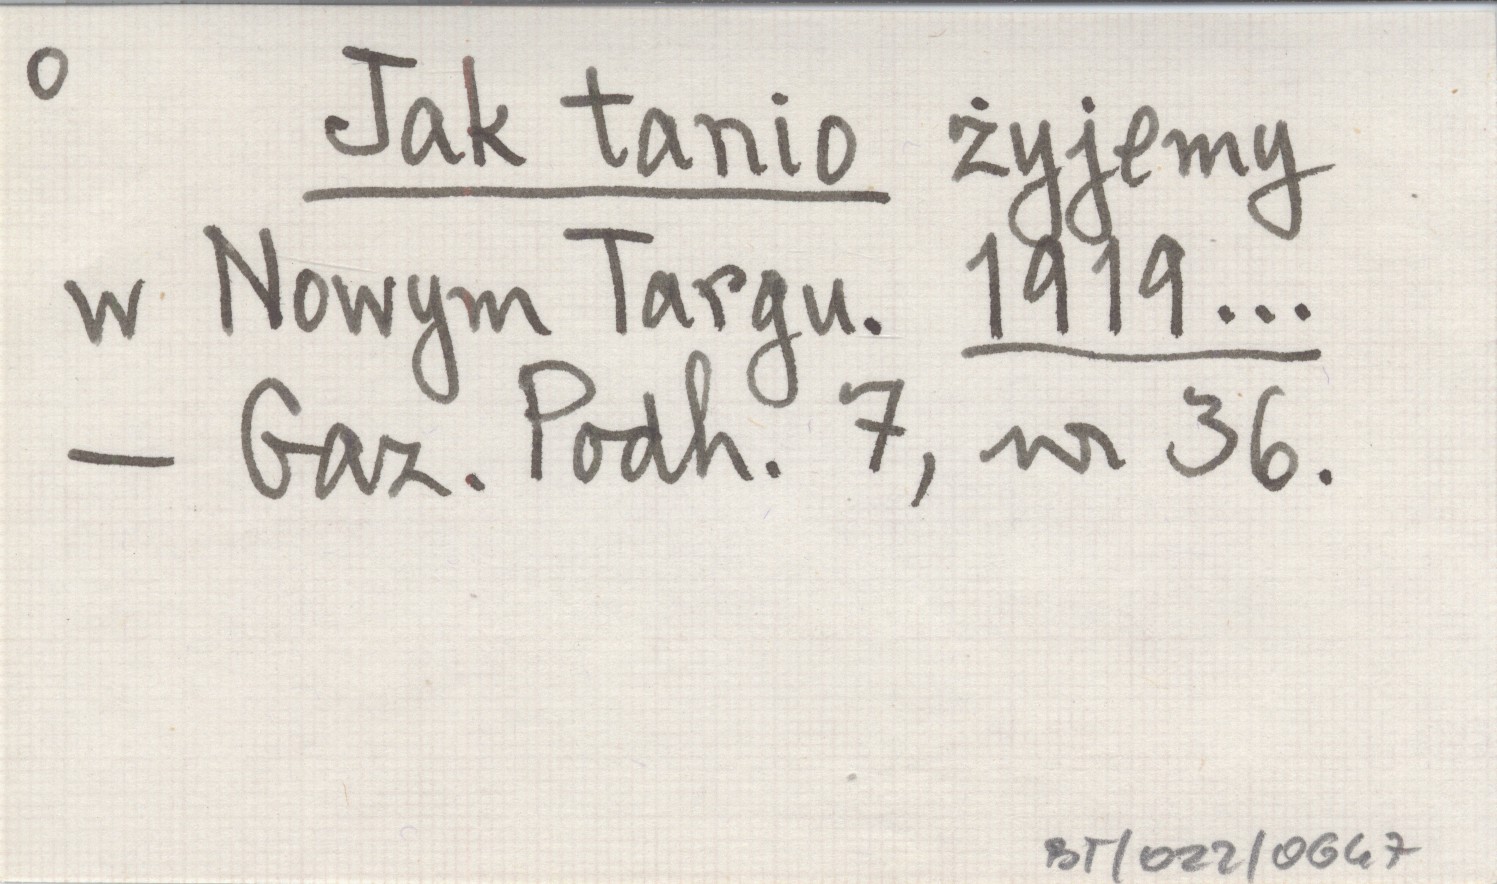 o Jak tanio żyjemy
w Nowym Targu. 1919...
— Gaz. Podh. 7, nr 36.
BT/022/0647